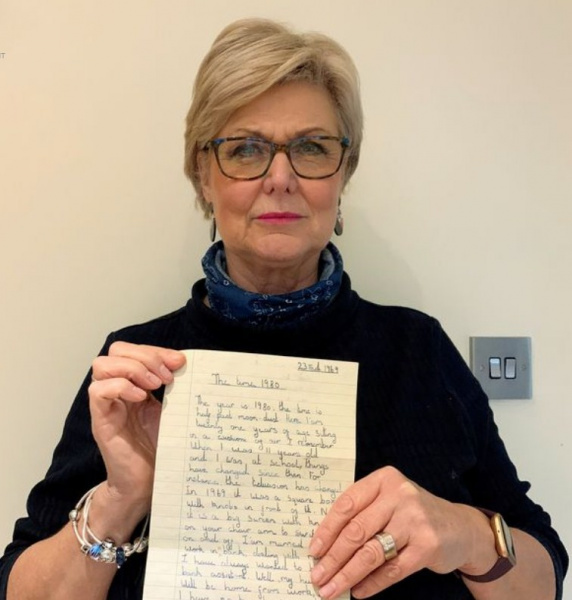 NT
23rd. 1969
The time 1980.
The year is 1980. the time is
half past noon. dead here I am
twenty one years of age sitting
in a of air. I remember
When I was 11 years old
and I was at school, things
have changed since then. For
instance the television has changed
In 1969 it was a square box
with knobs in front of it. N
it is a big screen with kn
on your chair arm to
on and off. I am married
work in bank, dealing with
I have always wanted to
bank assistent. Well my hu
will be home from work